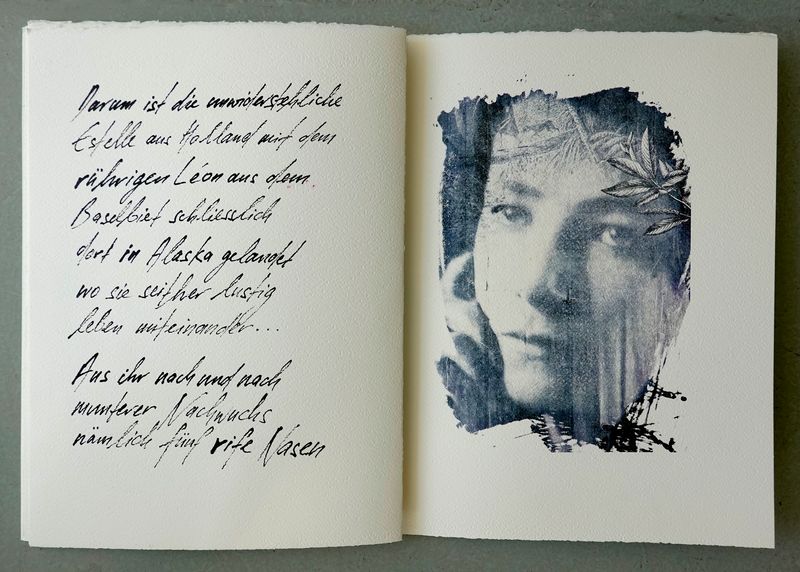 Darum ist die unwiderstehliche
Estelle aus Holland mit dem
rührigen Léon aus dem
Baselbiet schliesslich
dort in Alaska gelandet
wo sie seither lustig
leben miteinander...
Aus ihr nach und nach
munterer Nachwuchs
nämlich fünf rife Nasen